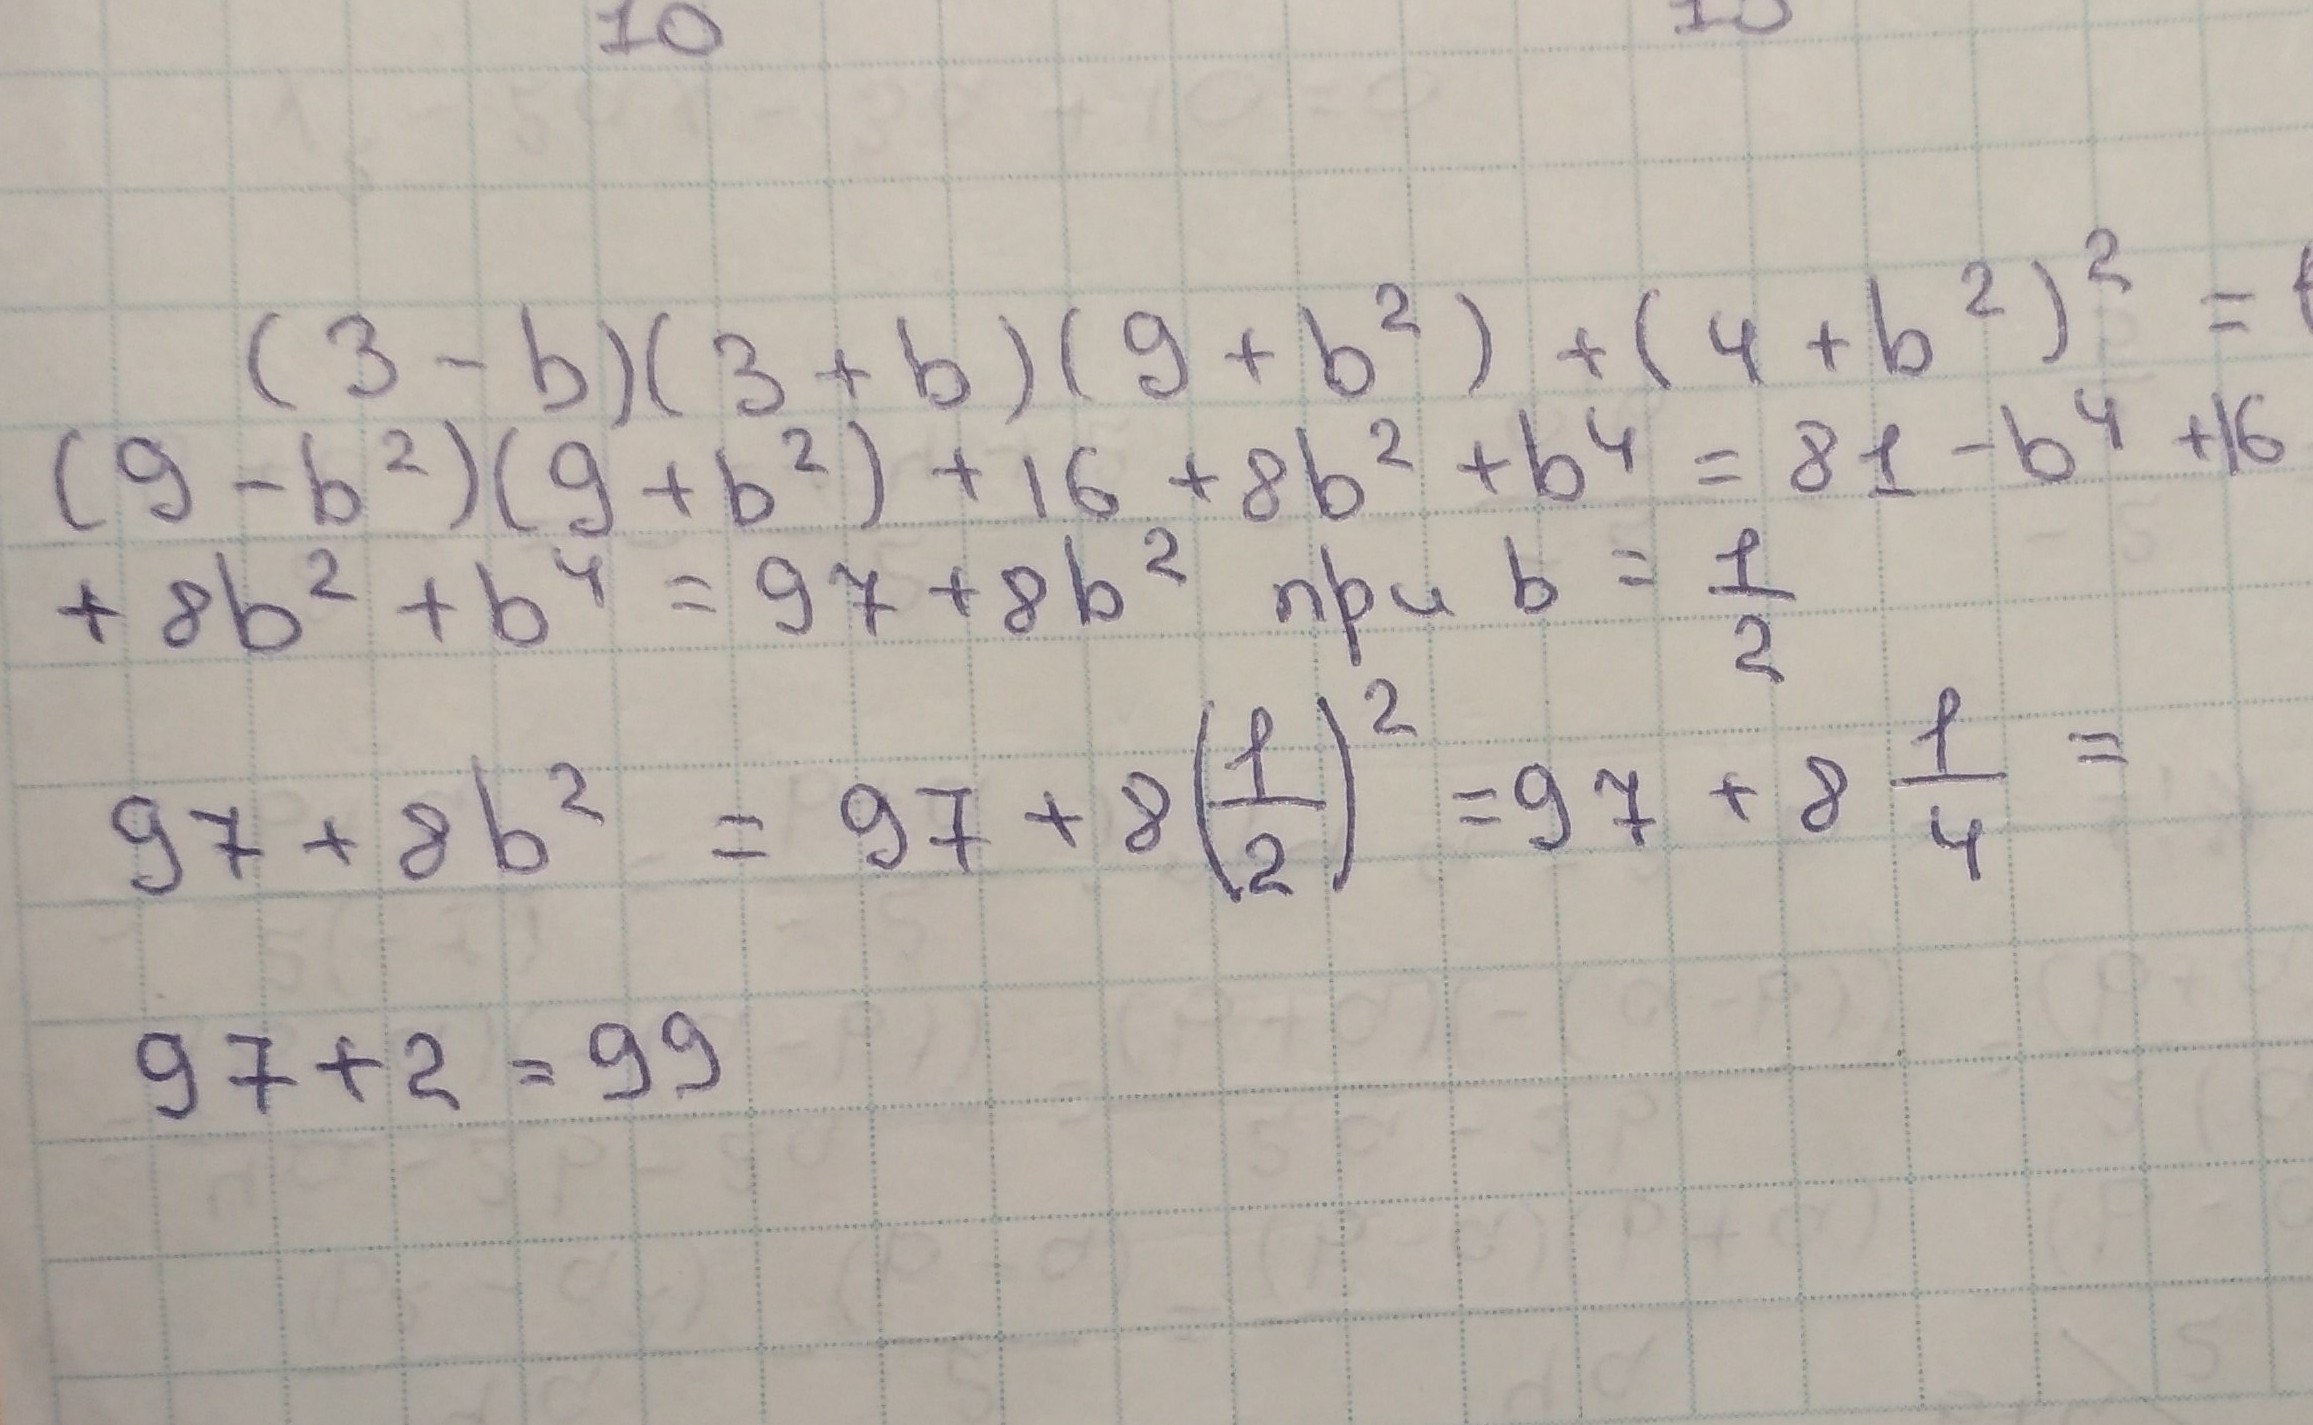 10 10
(3 - b)(3 + b)(9 + b²) + (4 + b²)² =
(9 - b²)(9 + b²) + 16 + 8b² + b⁴ = 81 - b⁴ + 16
+ 8b² + b⁴ = 97 + 8b² при b = 1/2
97 + 8b² = 97 + 8(1/2)² = 97 + 8 1/4 =
97 + 2 = 99